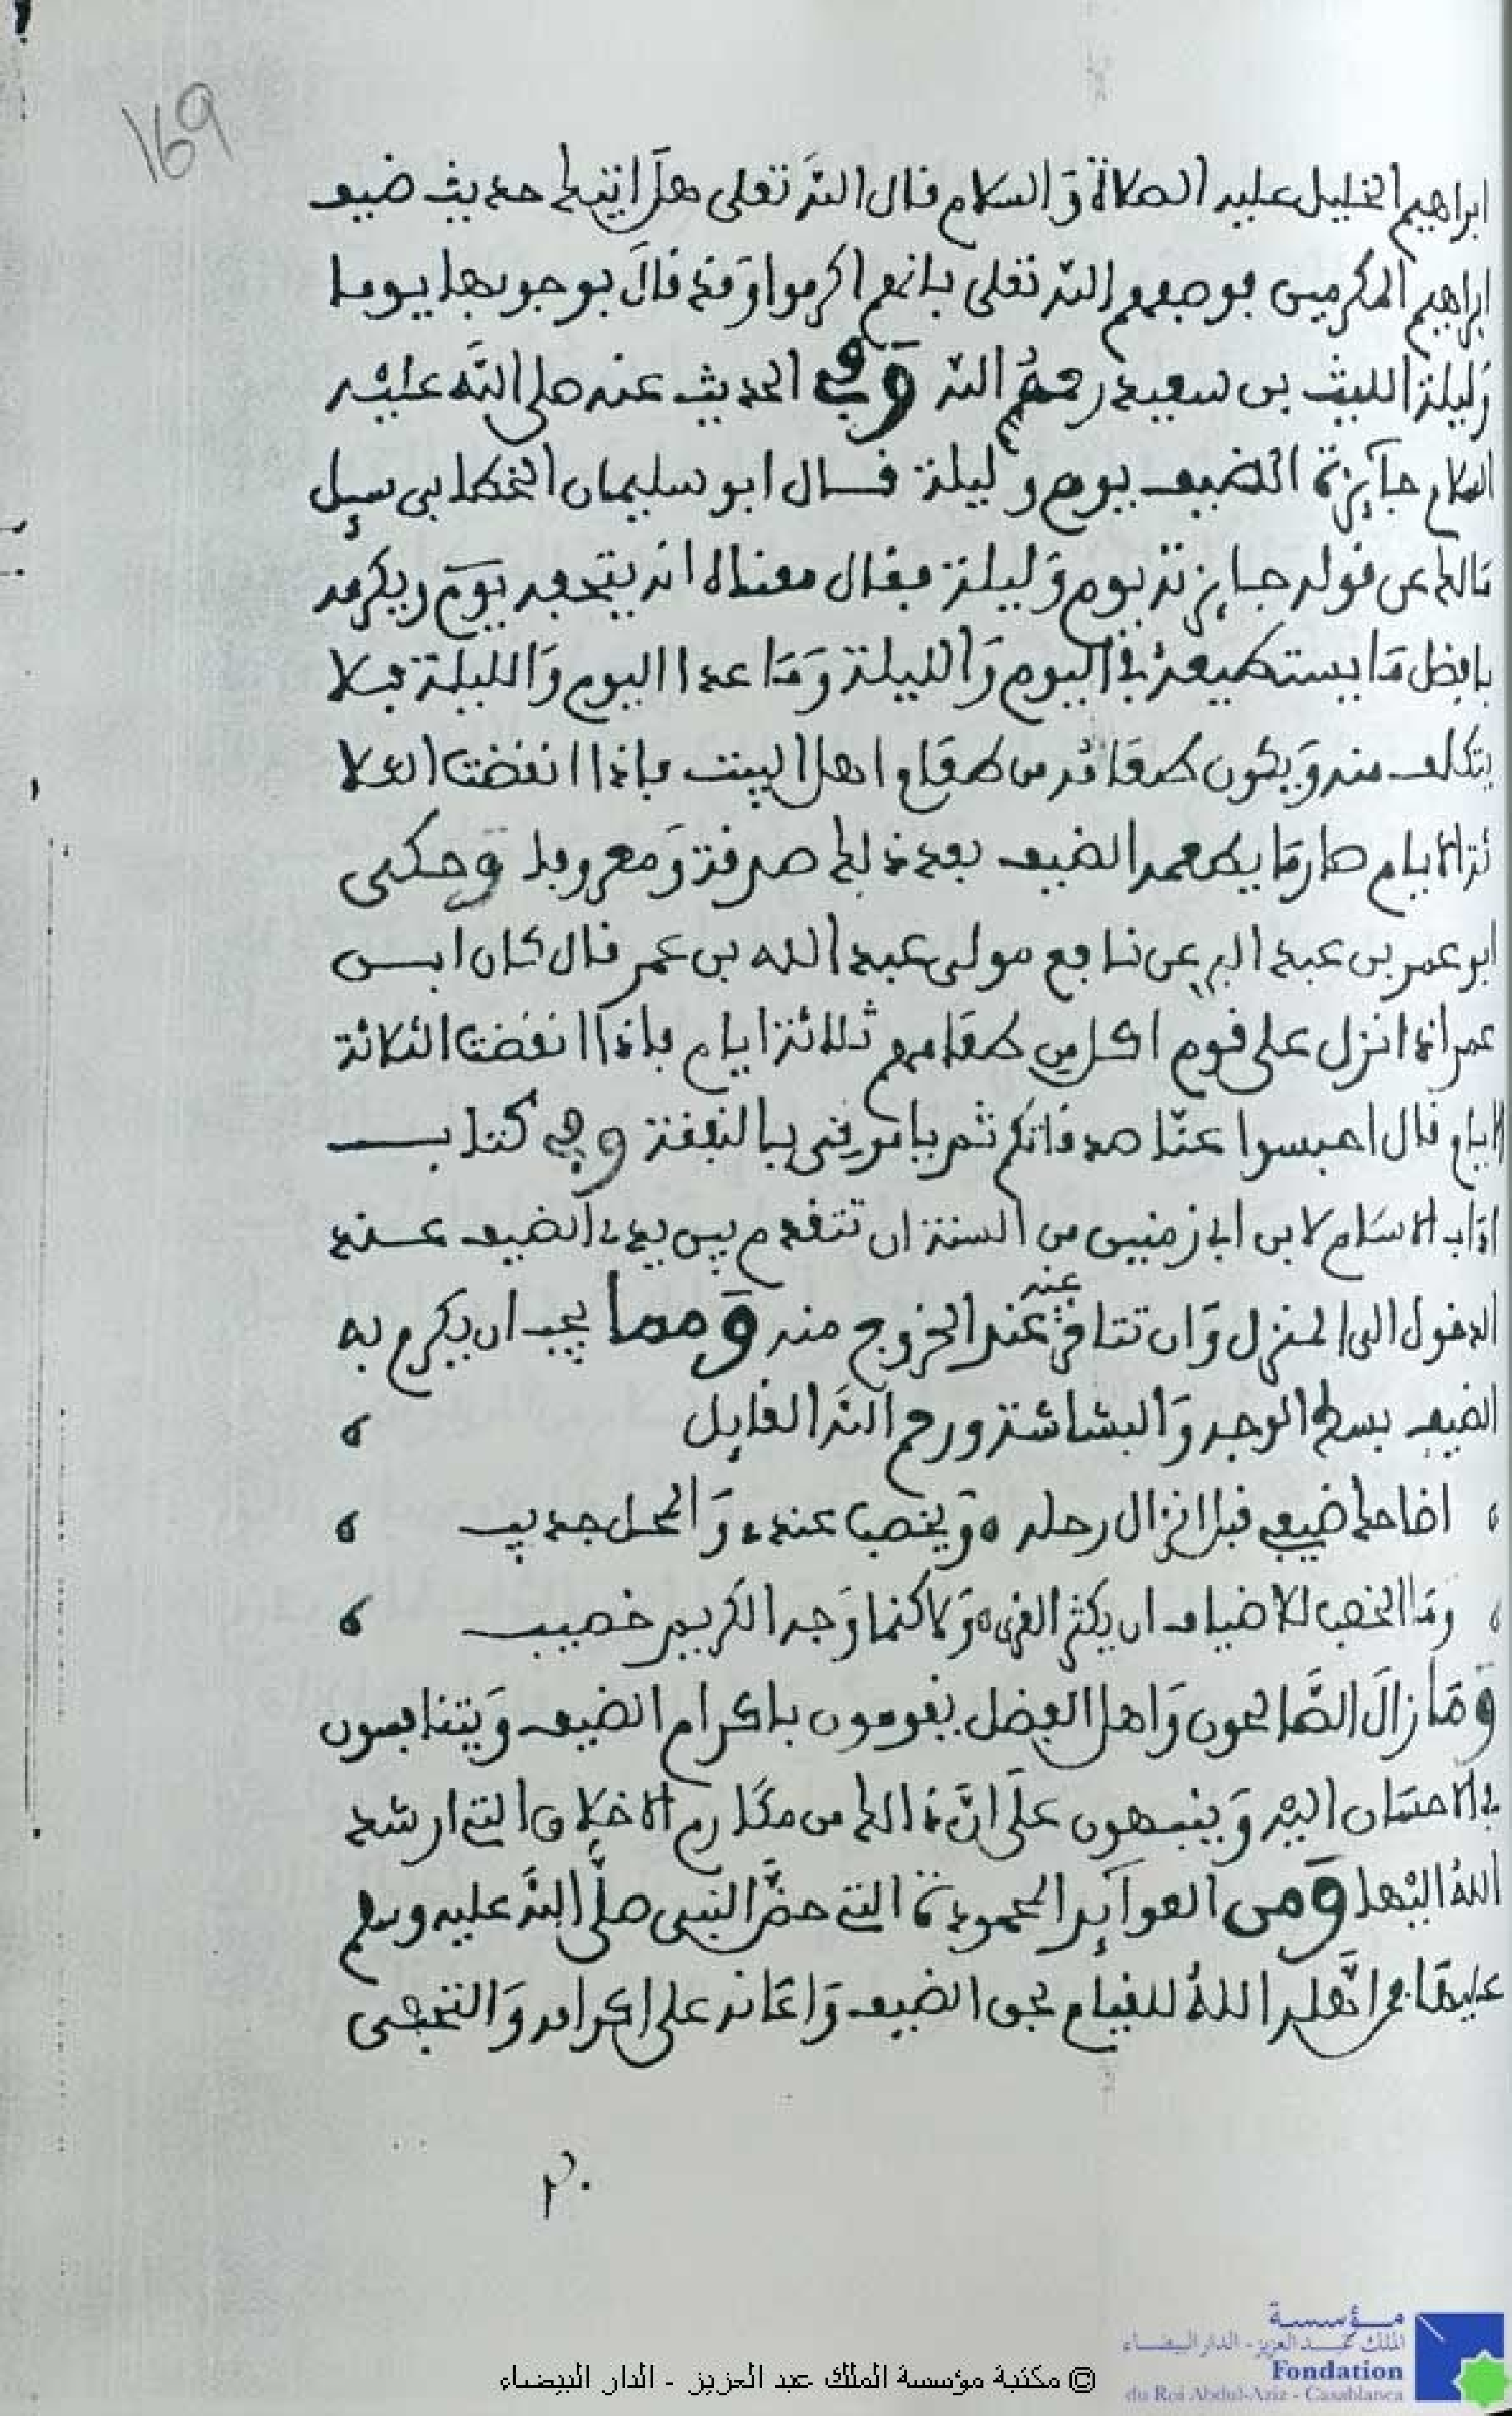 169
ابراهيم الخليل عليه الصلاة وَالسلام قال اللّه تعلى هلَ اتيك حديث ضيف
ابراهيم المكرمين فوصفهم اللّه تعلى بانهم اكرموا وَقد قالَ بوجوبها يوما
وَليلة الليث بن سعيد رحمهُ اللّه وَفي الحديث عنه صلى اللَّه عليْه
السلام جآئزة الضيف يوم وَليلة قال ابو سليمان الخطابي سيل
مالك عن قوله جايزته يوم وَليلة فقال معناه انه يتحفه يوم ويكرمه
بافضل مَا يستطيعهُ في اليوم وَالليلة وَمَا عدا اليوم وَالليلة فلا
يتكلف منه وَيكون طعَامُه من طعَام اهل البيت فاذا انقضت الثلا
ثة الايام صار مَا يطعمه الضيف بعد ذلك صدقة وَمعروفا وَحكى
ابو عمر بن عبد البر عن نافع مولى عبد الله بن عمر قال كان ابن
عمر اذا نزل على قوم اكل من طعَامهم ثلاثة ايام فاذا انقضت الثلاثة
الايام قال احبسوا عنّا صدقاتكم ثم يامرني بالنفقة وفي كتاب
اداب الاسَلام لابن ابي زمنين من السنة ان تتقدم بين يدي الضيف عند
الدخول الى المنزل وَان تتاخر عنه عَند الخروج منه وَمما يجب ان يكرم به
الضيف بسط الوجه وَالبشاشة ورحم اللَّه القايل
اضاحك ضيفي قبل انزال رحله ه وَيخصب عندي وَالمحل جديب
وَمَا الخصب للاضياف ان يكثر القرى ه وَلاكنما وَجه الكريم خصيب
وَمَا زالَ الصَّالحون وَاهل الفضل يقومون باكرام الضيف وَيتنافسون
في الاحسَان اليْه وَينبهون علَى انَّ ذالك من مكَارم الاخلاق التي ارشد
اللهُ اليْها وَمن العوآئد المحمودة التي حضَّ النبي صلَّى اللَّه عليه وسلم
عليهَا من اهَّله اللهُ للقيام بحق الضيف وَاعَانه على اكرامه وَالتحفى
© مكتبة مؤسسة الملك عبد العزيز - الدار البيضاء
مؤسسة
الملك عبد العزيز - الدار البيضاء
Fondation
du Roi Abdul-Aziz - Casablanca